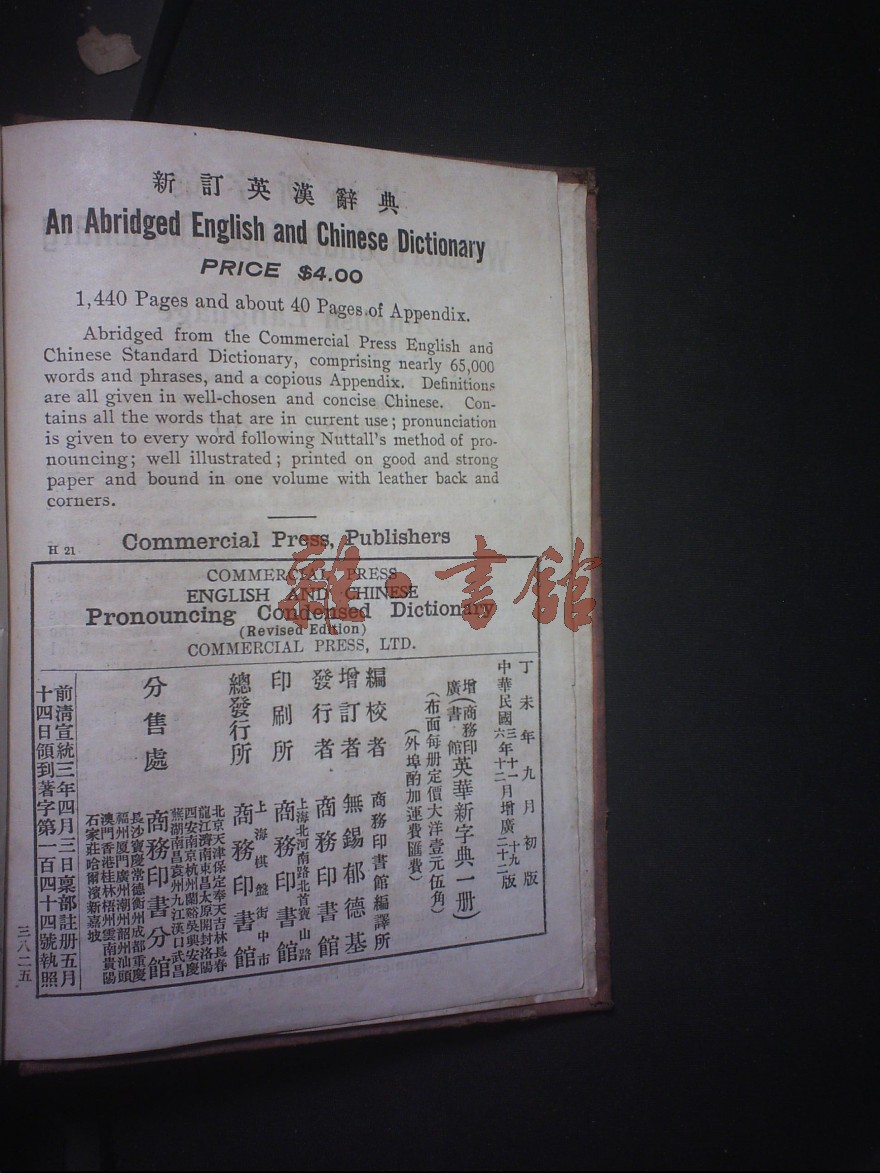 新訂英漢辭典
An Abridged English and Chinese Dictionary
PRICE $4.00
1,440 Pages and about 40 Pages of Appendix.
Abridged from the Commercial Press English and
Chinese Standard Dictionary, comprising nearly 65,000
words and phrases, and a copious Appendix. Definitions
are all given in well-chosen and concise Chinese. Con-
tains all the words that are in current use; pronunciation
is given to every word following Nuttall's method of pro-
nouncing; well illustrated; printed on good and strong
paper and bound in one volume with leather back and
corners.
H 21
Commercial Press, Publishers
COMMERCIAL PRESS
ENGLISH AND CHINESE
Pronouncing Condensed Dictionary
(Revised Edition)
COMMERCIAL PRESS, LTD.
丁未年九月初版
中華民國三年十一月增廣十九版
六年十二月二十二版
增廣(商務印書館英華新字典一册)
(布面每册定價大洋壹元伍角)
(外埠酌加運費匯費)
編校者 商務印書館編譯所
增訂者 無錫郁德基
發行者 商務印書館
上海北河南路北首寶山路
印刷所 商務印書館
上海棋盤街中市
總發行所 商務印書館
北京天津保定奉天吉林長春
龍江濟南東昌太原開封洛陽
西安南京杭州蘭谿吳興安慶
蕪湖南昌袁州九江漢口武昌
分售處 商務印書分館
長沙寶慶常德衡州成都重慶
福州厦門廣州潮州韶州汕頭
澳門香港桂林梧州雲南貴陽
石家莊哈爾濱新嘉坡
前清宣統三年四月三日稟部註册五月
十四日領到著字第一百四十四號執照
三八二五
書館